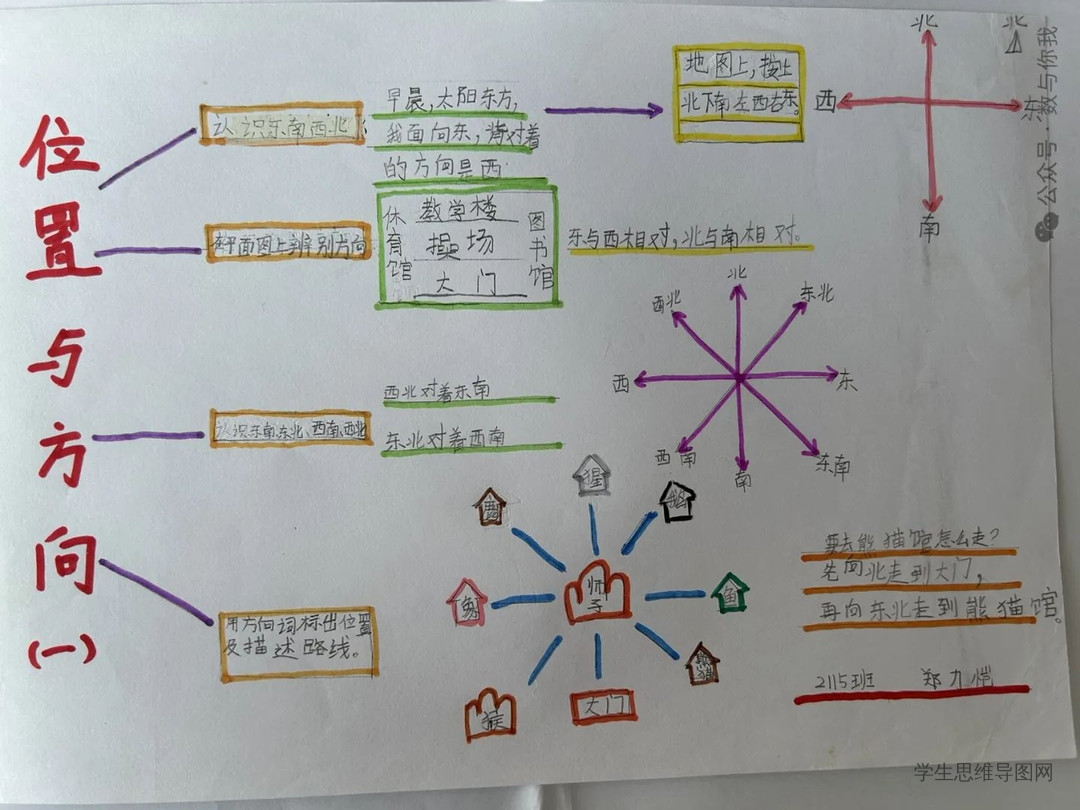 位置与方向(一)
认识东南西北
早晨,太阳东方,
我面向东,背对着
的方向是西.
地图上,按上
北下南左西右东。
北
西
东
南
北
在平面图上辨别方向
体育馆
教学楼
操场
大门
图书馆
东与西相对,北与南相对.
认识东南、东北、西南、西北
西北对着东南
东北对着西南
北
西北
东北
西
东
西南
南
东南
用方向词标出位置
及描述路线。
猩
狮子
鱼
熊猫
猴
大门
要去熊猫馆怎么走?
先向北走到大门,
再向东北走到熊猫馆。
2115班 郑力恺
公众号·数与你我
学生思维导图网